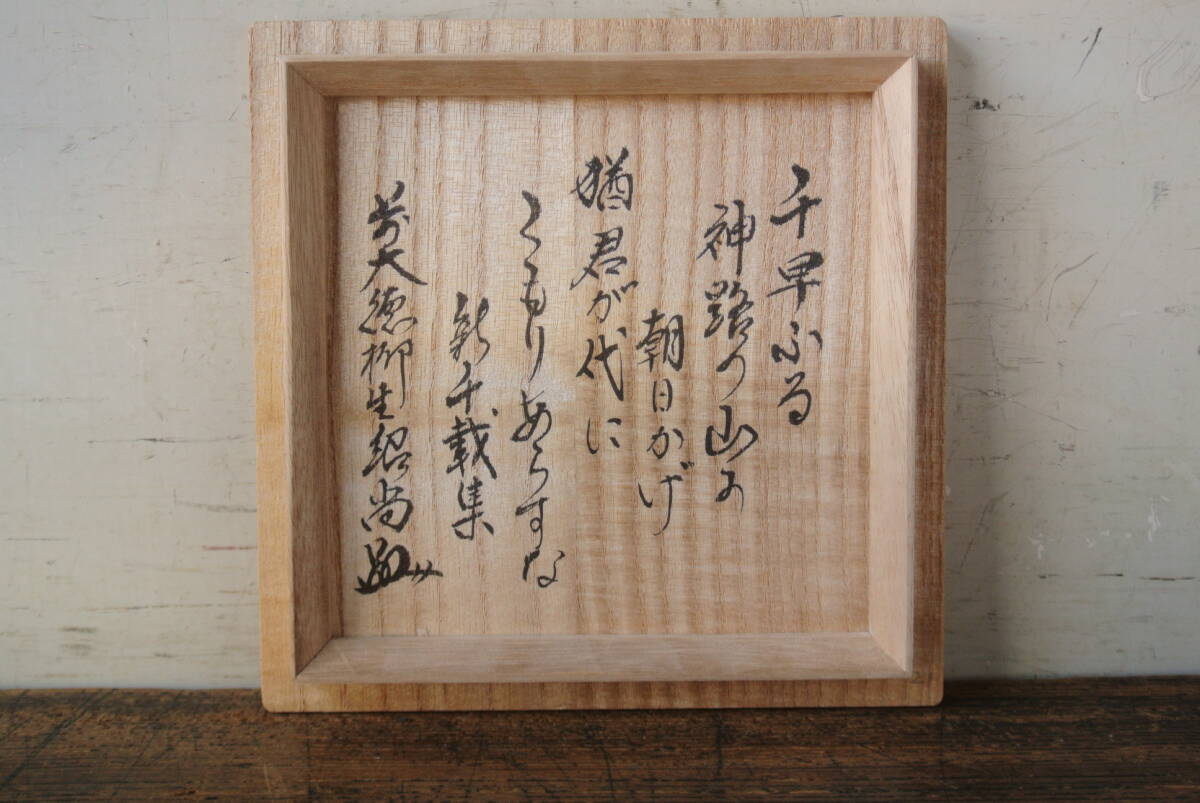 千早ふる
神路の山の
朝日かげ
猶君が代に
くもりあらすな
新千載集
前大徳柳生紹尚